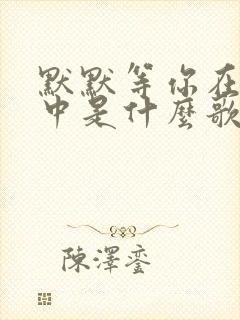 默默等你在
中是什麼歌
陳澤鑾